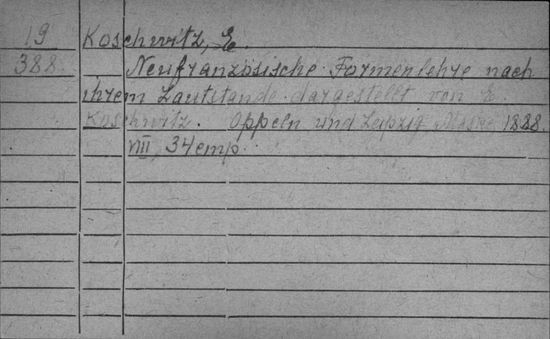 19 Koschwitz, E.
388. Neufranzösische Formenlehre nach
ihrem Lautstande dargestellt von E.
Koschwitz. Oppeln und Leipzig Maske 1888.
VIII, 34 emp.